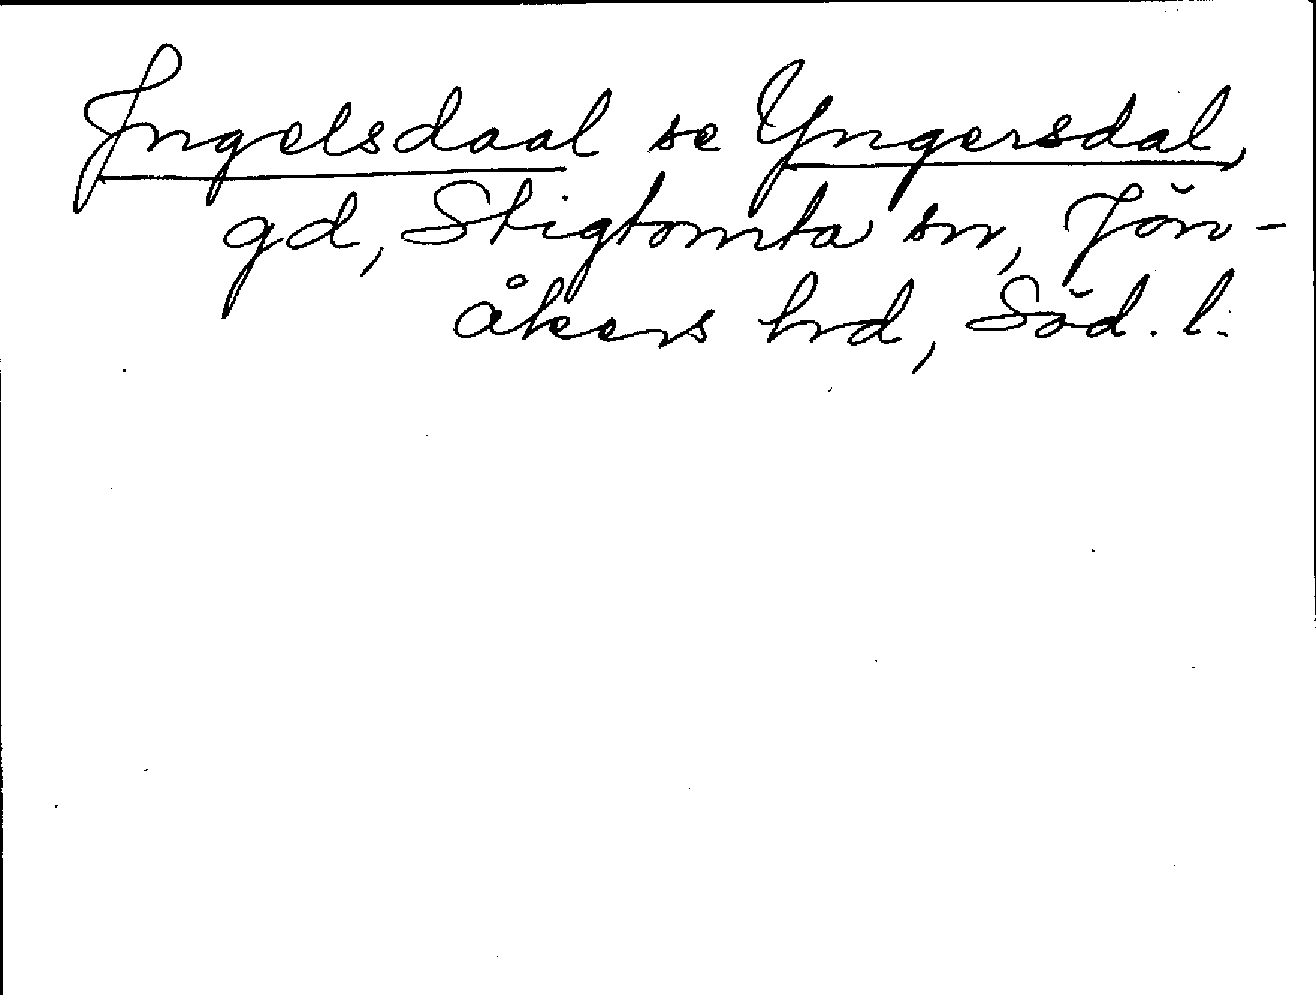 Jngelsdaal se Yngersdal,
gd, Stigtomta sn, Jön-
åkers hrd, Söd. l.